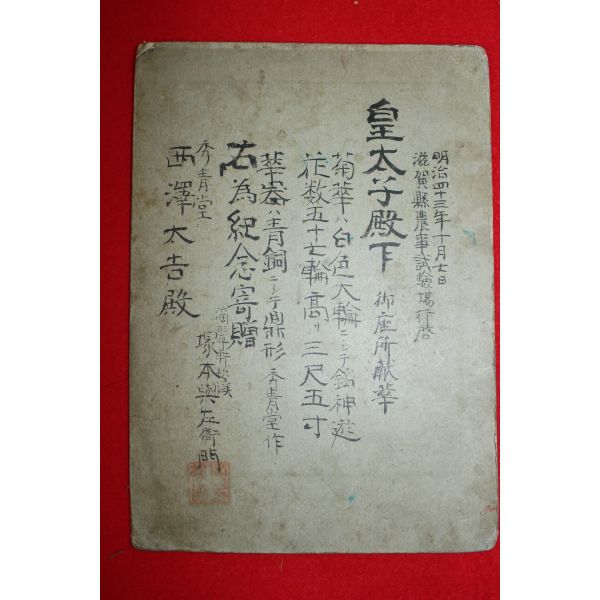 明治四十三年十月七日
滋賀縣農事試驗場行啓
皇太子殿下 御座所献華
菊華ハ白色大輪ニシテ銘神遊
花数五十七輪高サ三尺五寸
華器ハ青銅ニシテ鼎形 秀青堂作
右為紀念寄贈
塚本與左衛門
秀青堂
西澤太吉殿